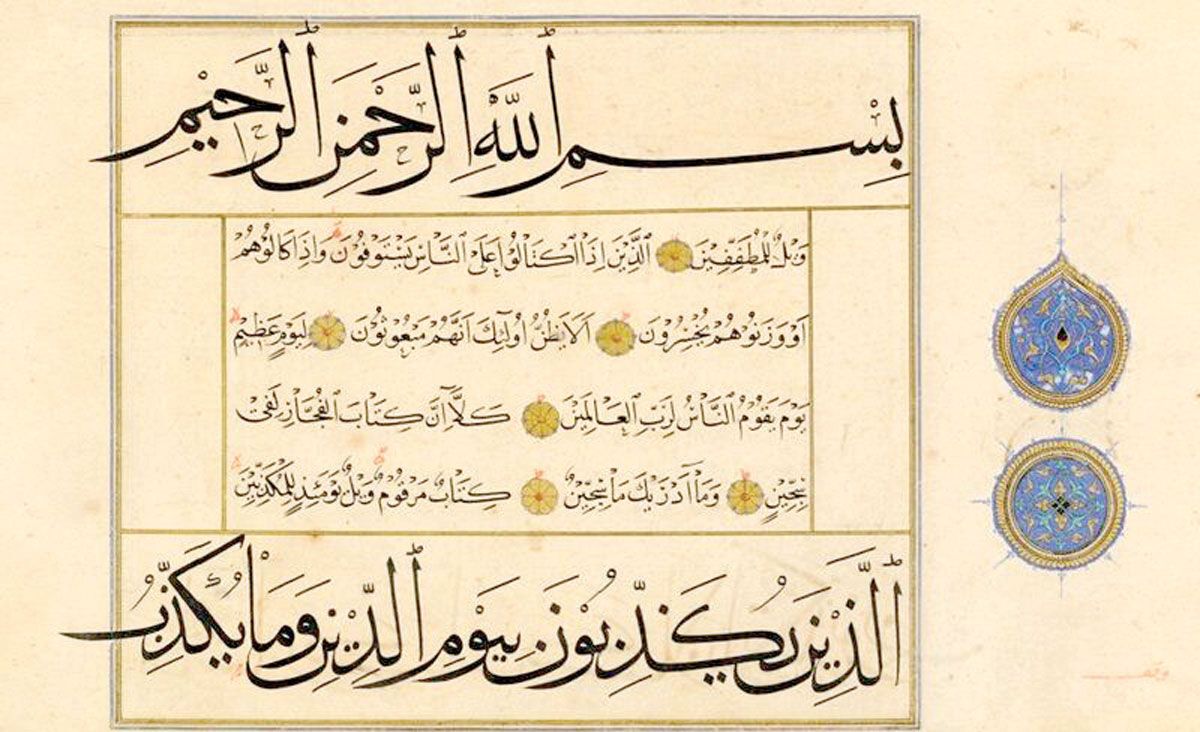 بِسْمِ اللَّهِ الرَّحْمَٰنِ الرَّحِيمِ
وَيْلٌ لِلْمُطَفِّفِينَ الَّذِينَ إِذَا اكْتَالُوا عَلَى النَّاسِ يَسْتَوْفُونَ وَإِذَا كَالُوهُمْ
أَوْ وَزَنُوهُمْ يُخْسِرُونَ أَلَا يَظُنُّ أُولَٰئِكَ أَنَّهُمْ مَبْعُوثُونَ لِيَوْمٍ عَظِيمٍ
يَوْمَ يَقُومُ النَّاسُ لِرَبِّ الْعَالَمِينَ كَلَّا إِنَّ كِتَابَ الْفُجَّارِ لَفِي
سِجِّينٍ وَمَا أَدْرَيكَ مَا سِجِّينٌ كِتَابٌ مَرْقُومٌ وَيْلٌ يَوْمَئِذٍ لِلْمُكَذِّبِينَ
الَّذِينَ يُكَذِّبُونَ بِيَوْمِ الدِّينِ وَمَا يُكَذِّبُ